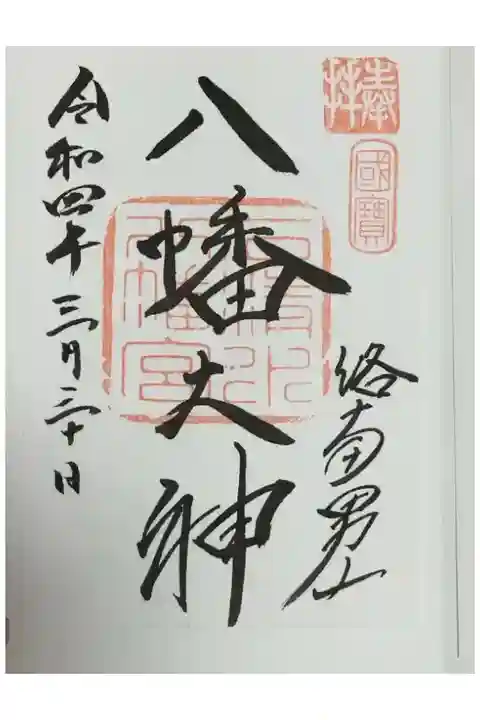 奉拝
國寶
洛南男山
八幡大神
石清水八幡宮
令和四年三月三十日